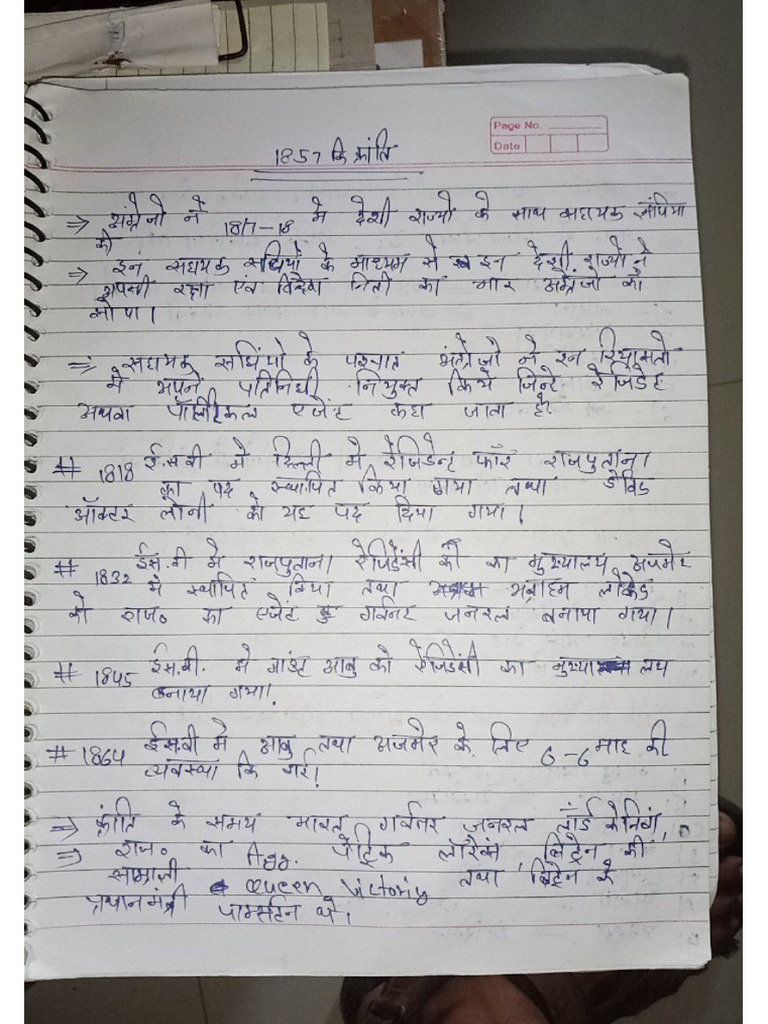 Page No.
Date
1857 कि क्रांति
⇒ अंग्रेजो ने 1817-18 मे देशी राज्यो के साथ सहायक संधिया
की
⇒ इन सहायक संधियों के माध्यम से इन देशी राज्यो ने
अपनी रक्षा एवं विदेश निती का भार अंग्रेजो को
सोपा।
⇒ सहायक संधियों के पश्चात अंग्रेजो ने इन रियासतो
मे अपने प्रतिनिधी नियुक्त किये जिन्हे रेजिडेंट
अथवा पॉलिटिकल एजेंट कहा जाता है।
# 1818 ई.स.वी मे दिल्ली मे रेजिडेन्ट फॉर राजपुताना
का पद स्थापित किया गया तथा डेविड
ऑक्टर लोनी को यह पद दिया गया।
# 1832 ईस.वी मे राजपुताना रेजिडेंसी का मुख्यालय अजमेर
मे स्थापित किया तथा अब्राहम लॉकेट
को राज० का एजेंट टु गर्वनर जनरल बनाया गया।
# 1845 ईस.वी. मे माउंट आबु को रेजिडेंसी का मुख्यालय
बनाया गया।
# 1864 ईस.वी मे आबु तथा अजमेर के लिए 6-6 माह की
व्यवस्था कि गई।
⇒ क्रांति के समय भारत गर्वनर जनरल लॉर्ड केनिंग,
⇒ राज० का Agg. पेट्रिक लॉरेंस, ब्रिट्रेन की
साम्राज्ञी Queen Victoriy तथा ब्रिट्रेन के
प्रधानमंत्री पार्मस्टन थे।